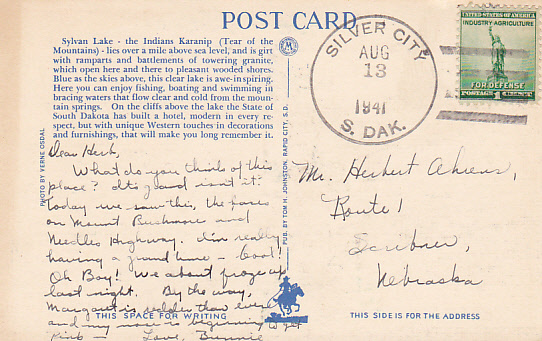 POST CARD
Sylvan Lake - the Indians Karanip (Tear of the
Mountains) - lies over a mile above sea level, and is girt
with ramparts and battlements of towering granite,
which open here and there to pleasant wooded shores.
Blue as the skies above, this clear lake is awe-inspiring.
Here you can enjoy fishing, boating and swimming in
bracing waters that flow clear and cold from the moun-
tain springs. On the cliffs above the lake the State of
South Dakota has built a hotel, modern in every re-
spect, but with unique Western touches in decorations
and furnishings, that will make you long remember it.
PHOTO BY VERNE OSDAL
Dear Herb,
What do you think of this
place? It's grand isn't it?
Today we saw this, the faces
on Mount Rushmore and
Needles Highway. I'm really
having a grand time - cool!
Oh Boy! We about froze up
last night. By the way,
Margaret is redder than ever
and my nose is beginning to get
pink - Love, Bunnie
THIS SPACE FOR WRITING
PUB. BY TOM H. JOHNSTON, RAPID CITY, S.D.
SILVER CITY
AUG
13
1941
S. DAK.
UNITED STATES OF AMERICA
INDUSTRY-AGRICULTURE
FOR DEFENSE
POSTAGE 1 CENT
Mr. Herbert Ahrens,
Route 1
Scribner,
Nebraska
THIS SIDE IS FOR THE ADDRESS